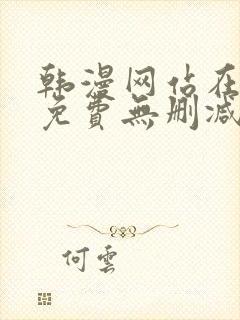 韩漫网站在
免費無删减
何雲